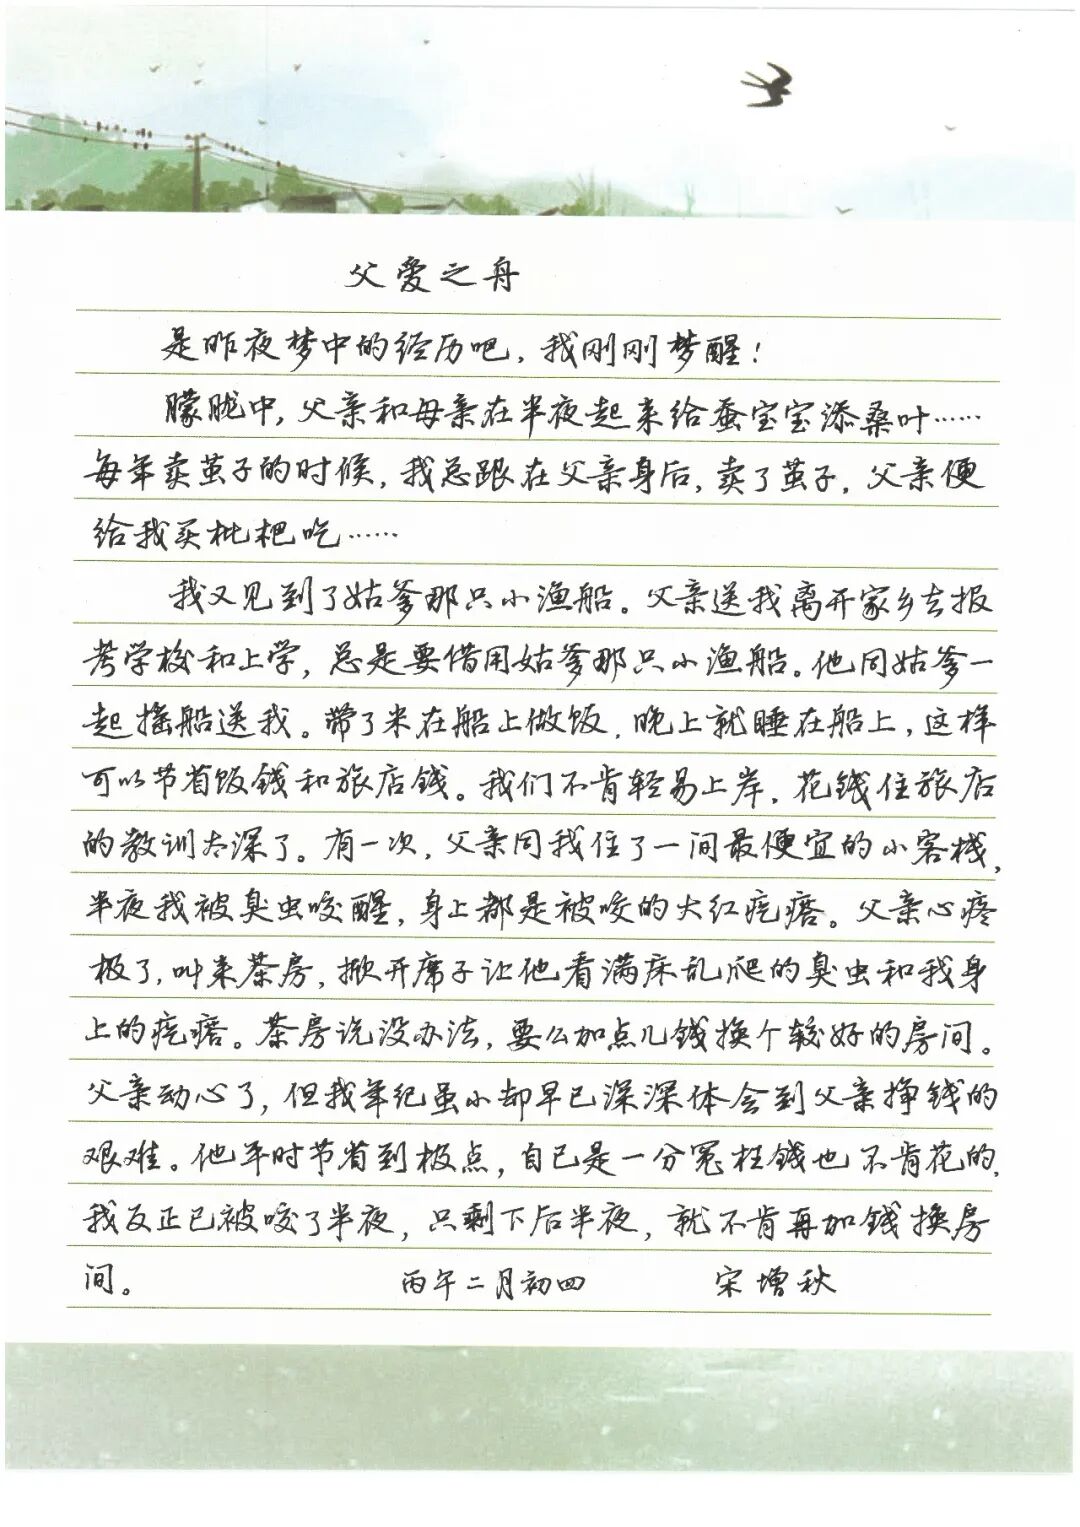 父爱之舟
是昨夜梦中的经历吧，我刚刚梦醒！
朦胧中，父亲和母亲在半夜起来给蚕宝宝添桑叶……
每年卖茧子的时候，我总跟在父亲身后，卖了茧子，父亲便
给我买枇杷吃……
我又见到了姑爹那只小渔船。父亲送我离开家乡去报
考学校和上学，总是要借用姑爹那只小渔船。他同姑爹一
起摇船送我。带了米在船上做饭，晚上就睡在船上，这样
可以节省饭钱和旅店钱。我们不肯轻易上岸，花钱住旅店
的教训太深了。有一次，父亲同我住了一间最便宜的小客栈，
半夜我被臭虫咬醒，身上都是被咬的大红疙瘩。父亲心疼
极了，叫来茶房，掀开席子让他看满床乱爬的臭虫和我身
上的疙瘩。茶房说没办法，要么加点儿钱换个较好的房间。
父亲动心了，但我年纪虽小却早已深深体会到父亲挣钱的
艰难。他平时节省到极点，自己是一分冤枉钱也不肯花的，
我反正已被咬了半夜，只剩下后半夜，就不肯再加钱换房
间。 丙午二月初四 宋增秋